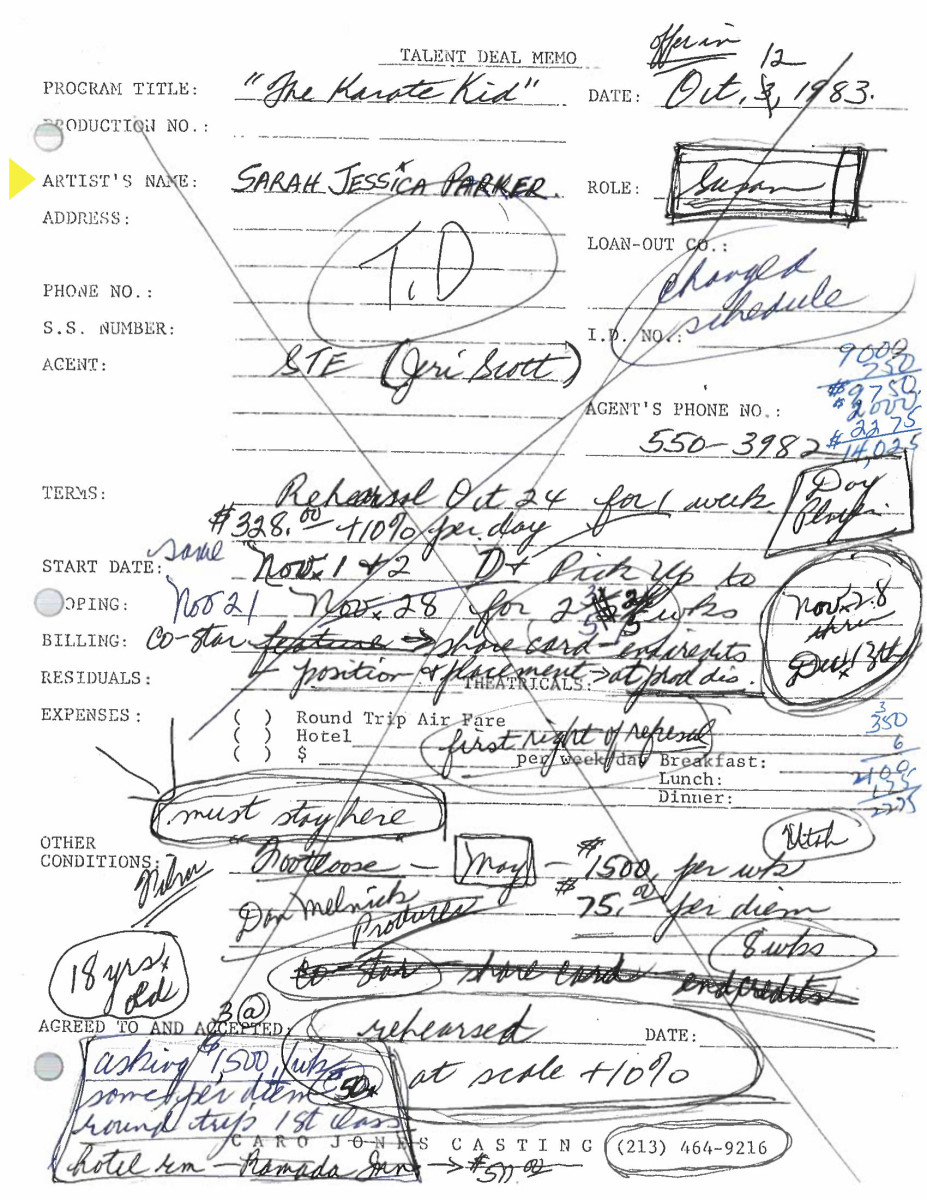 offer in
TALENT DEAL MEMO
12
PROGRAM TITLE: "The Karate Kid" DATE: Oct, 3, 1983.
PRODUCTION NO.:
ARTIST'S NAME: SARAH JESSICA PARKER. ROLE: Susan
ADDRESS:
T.D
LOAN-OUT CO.:
changed
schedule
PHONE NO.:
S.S. NUMBER: I.D. NO.:
AGENT: STE (Jeri Scott)
9000
750
$9750.
$2000.
$2275
$14,025
AGENT'S PHONE NO.:
550-3982
TERMS: Rehearsal Oct 24 for 1 week
Day
Player
$328.00 +10% per day
same
START DATE: Nov. 1 & 2 D+ Pick Up to
OPING: Nov 21 Nov. 28 for 2 wks
Nov. 28
thru
Dec 13th
BILLING: co-star feature → share card - endcredits
RESIDUALS: position & placement → at prod dis.
THEATRICALS:
EXPENSES: ( ) Round Trip Air Fare
( ) Hotel
first right of refusal
( ) $ per week/day Breakfast:
Lunch:
Dinner:
3
350
6
2100
175
2275
must stay here
Utah
OTHER
CONDITIONS: "Footloose" - May - $1500, per wk
Dan Melnick $75.00 per diem
Producer
8 wks
18 yrs.
old
co-star share card endcredits
3 @
AGREED TO AND ACCEPTED: rehearsed DATE:
at scale +10%
asking $1,500,/wk
some per diem 50.
round trip 1st class
CARO JONES CASTING (213) 464-9216
hotel rm - Ramada Inn → $511.00